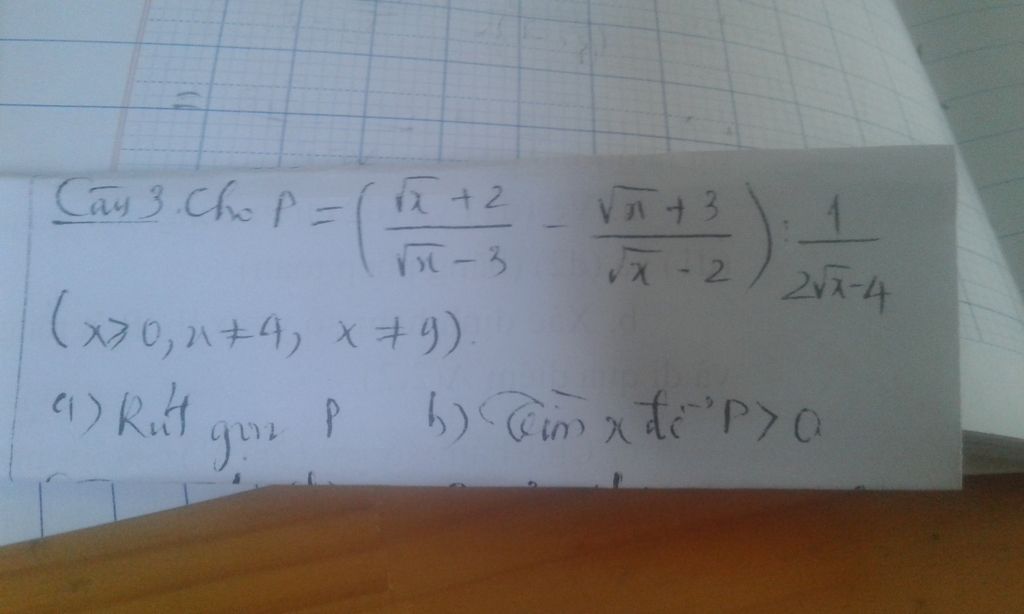 Câu 3. Cho P = ( (√x + 2)/(√x - 3) - (√x + 3)/(√x - 2) ) : 1/(2√x - 4)
(x ≥ 0, x ≠ 4, x ≠ 9).
a) Rút gọn P b) Tìm x để P > 0